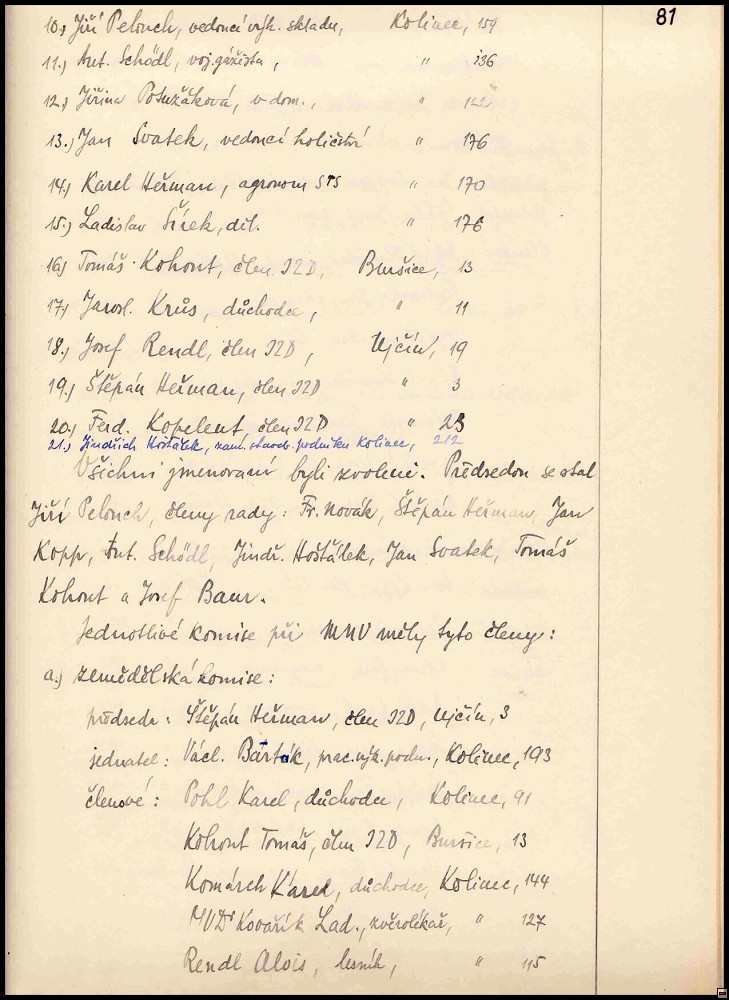 81
10.) Jiří Pelouch, vedoucí výk. skladu, Kolinec, 159
11.) Ant. Schödl, voj. gážista, " 136
12.) Jiřina Posužáková, v dom., " 122
13.) Jan Svatek, vedoucí holičství " 176
14.) Karel Heřman, agronom STS " 170
15.) Ladislav Šírek, děl. " 176
16.) Tomáš Kohout, člen JZD, Buršice, 13
17.) Jarosl. Krůs, důchodce, " 11
18.) Josef Rendl, člen JZD, Ujčín, 19
19.) Štěpán Heřman, člen JZD " 3
20.) Ferd. Kopelent, člen JZD " 23
21.) Jindřich Hošťálek, zam. staveb. podniku Kolinec, 212
Všichni jmenovaní byli zvoleni. Předsedou se stal
Jiří Pelouch, členy rady: Fr. Novák, Štěpán Heřman, Jan
Kopp, Ant. Schödl, Jindř. Hošťálek, Jan Svatek, Tomáš
Kohout a Josef Baur.
Jednotlivé komise při MNV měly tyto členy:
a.) zemědělská komise:
předseda: Štěpán Heřman, člen JZD, Ujčín, 3
jednatel: Václ. Barták, prac. výk. podn., Kolinec, 193
členové: Pohl Karel, důchodce, Kolinec, 91
Kohout Tomáš, člen JZD, Buršice, 13
Komárek Karel, důchodce, Kolinec, 144
MVDr Kovařík Lad., zvěrolékař, " 127
Rendl Alois, lesník, " 115